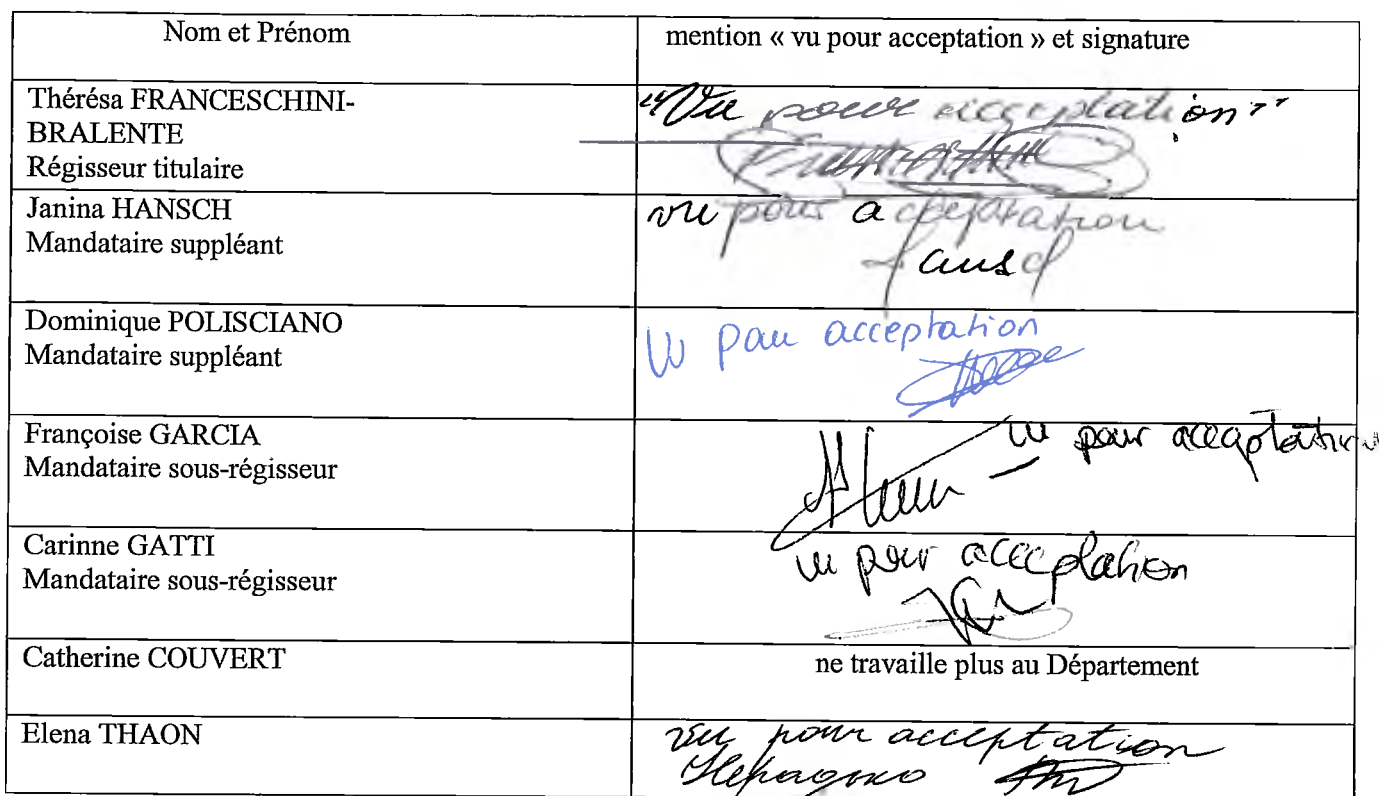 Nom et Prénom
mention « vu pour acceptation » et signature
Thérésa FRANCESCHINI-
BRALENTE
Régisseur titulaire
"Vu pour acceptation"
Janina HANSCH
Mandataire suppléant
vu pour acceptation
Dominique POLISCIANO
Mandataire suppléant
vu pour acceptation
Françoise GARCIA
Mandataire sous-régisseur
vu pour acceptation
Carinne GATTI
Mandataire sous-régisseur
vu pour acceptation
Catherine COUVERT
ne travaille plus au Département
Elena THAON
vu pour acceptation